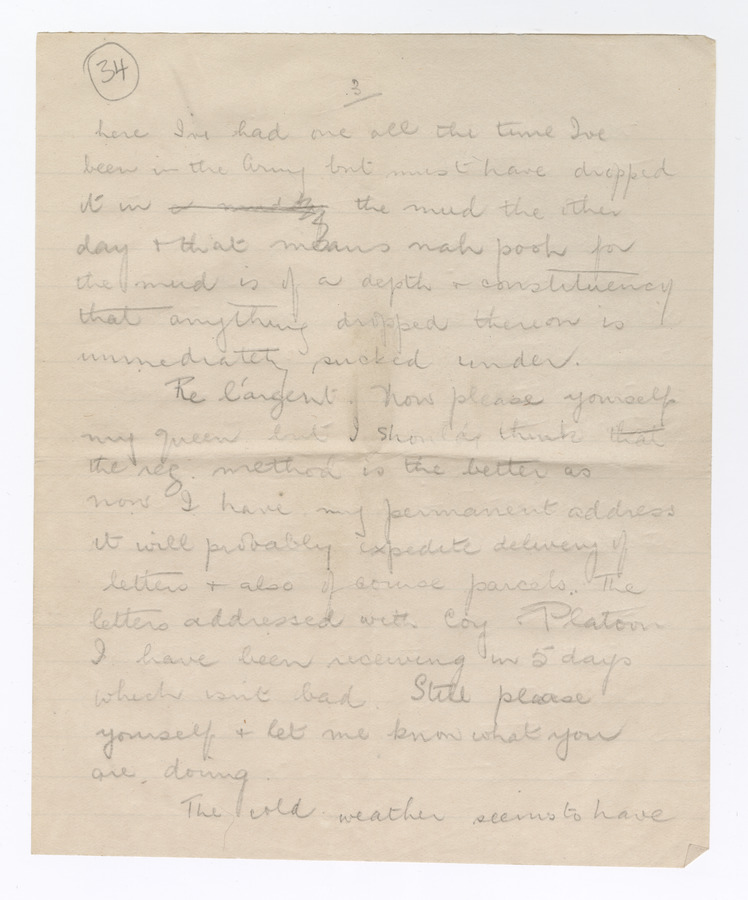 34
3
here I've had one all the time I've
been in the Army but must have dropped
it in the mud the other
day & that means nah pooh for
the mud is of a depth & constituency
that anything dropped thereon is
immediately sucked under.
Re l'argent. Now please yourself
my queen but I should think that
the reg. method is the better as
now I have my permanent address
it will probably expedite delivery of
letters & also of course parcels. The
letters addressed with Coy & Platoon
I have been receiving in 5 days
which isn't bad. Still please
yourself & let me know what you
are doing.
The cold weather seems to have